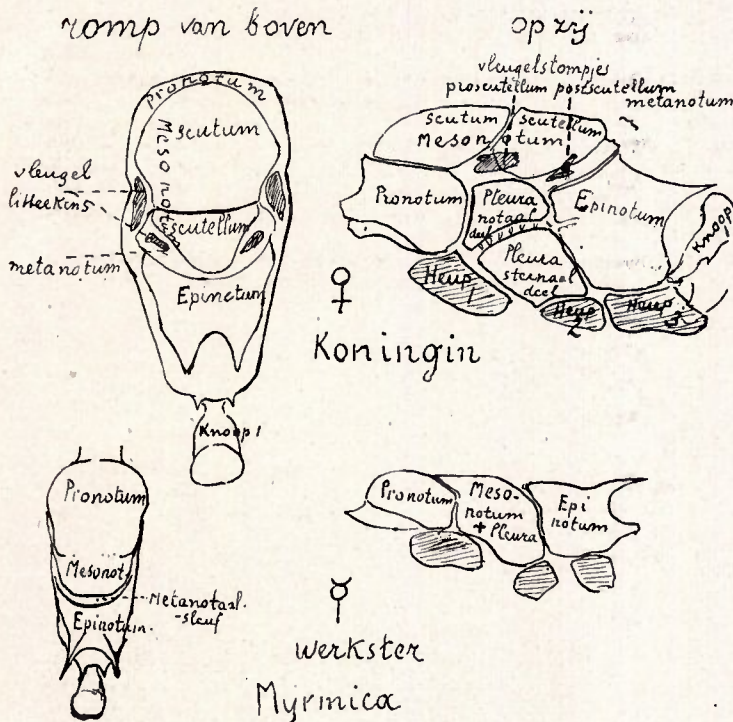 romp van boven
op zij
Pronotum
Mesonotum
scutum
scutellum
vleugel
litteekens
metanotum
Epinotum
Knoop 1
vleugelstompjes
proscutellum postscutellum
metanotum
scutum
scutellum
Mesonotum
Pronotum
Pleura
notaal
deel
Epinotum
Knoop 1
Pleura
sternaal
deel
Heup
1
Heup
2
Heup
3
♀
Koningin
Pronotum
Mesonot.
Metanotaal
-sleuf
Epinotum.
Pronotum
Meso-
notum
+ Pleura
Epi
notum
☿
werkster
Myrmica